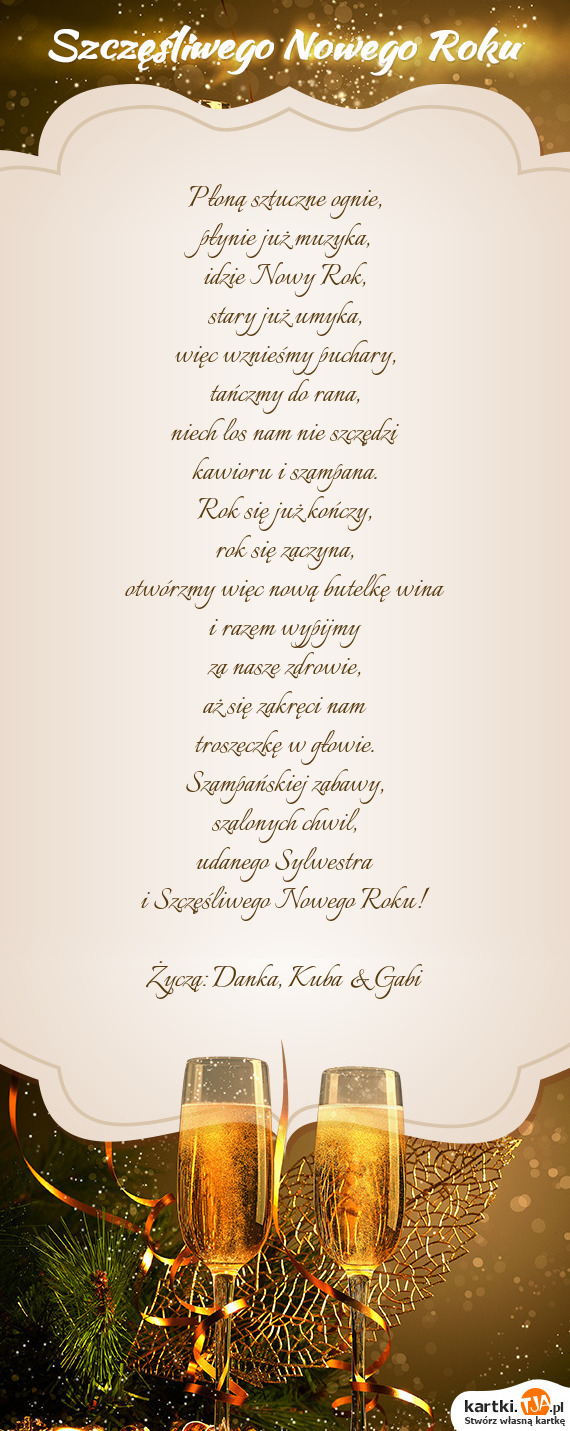 Szczęśliwego Nowego Roku
Płoną sztuczne ognie,
płynie już muzyka,
idzie Nowy Rok,
stary już umyka,
więc wznieśmy puchary,
tańczmy do rana,
niech los nam nie szczędzi
kawioru i szampana.
Rok się już kończy,
rok się zaczyna,
otwórzmy więc nową butelkę wina
i razem wypijmy
za nasze zdrowie,
aż się zakręci nam
troszeczkę w głowie.
Szampańskiej zabawy,
szalonych chwil,
udanego Sylwestra
i Szczęśliwego Nowego Roku!
Życzą: Danka, Kuba & Gabi
kartki.TJA.pl
Stwórz własną kartkę